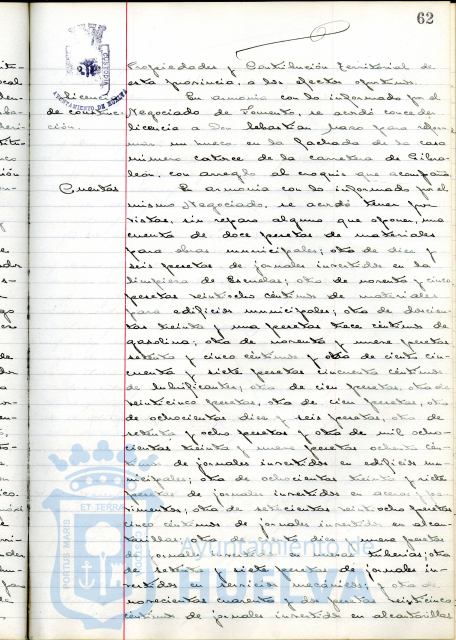 62
Propiedades y Contribución Territorial de
esta provincia, a los efectos oportunos.
Licencia
de construc-
ción.
En armonía con lo informado por el
Negociado de Fomento, se acordó conceder
licencia a Don Sebastián para
mar un hueco en la fachada de la casa
número catorce de la carretera de Gibra-
león, con arreglo al croquis que acompaña.
Cuentas
En armonía con lo informado por el
mismo Negociado, se acordó tener por
vistas, sin reparo alguno que oponer, una
cuenta de doce pesetas de materiales
para obras municipales; otra de diez y
seis pesetas de jornales invertidos en la
limpieza de Escuelas; otra de noventa y cinco
pesetas veintiocho céntimos de materiales
para edificios municipales; otra de doscien-
tas treinta y una pesetas trece céntimos de
gasolina; otra de noventa y nueve pesetas
setenta y cinco céntimos y otra de ciento cin-
cuenta y siete pesetas cincuenta céntimos
de lubrificantes; otra de cien pesetas, otra de
veinticinco pesetas, otra de cien pesetas, otra
de ochocientas diez y seis pesetas, otra de
setenta y ocho pesetas y otra de mil ocho-
cientas treinta y nueve pesetas ochenta cén-
timos de jornales invertidos en edificios mu-
nicipales; otra de ochocientas treinta y siete
pesetas de jornales invertidos en aceras y pa-
vimentos; otra de setecientas veintiocho pesetas
cinco céntimos de jornales invertidos en alcan-
tarillas; otra de treinta y nueve pesetas
de jornales invertidos en varias tuberías; otra
de setenta y siete pesetas de jornales in-
vertidos en servicios mecánicos; y otra de
novecientas cuarenta y dos pesetas veinticinco
céntimos de jornales invertidos en alcantarillas
AYUNTAMIENTO DE HUELVA
PORTUS MARIS ET TERRAE
Ayuntamiento de
HUELVA